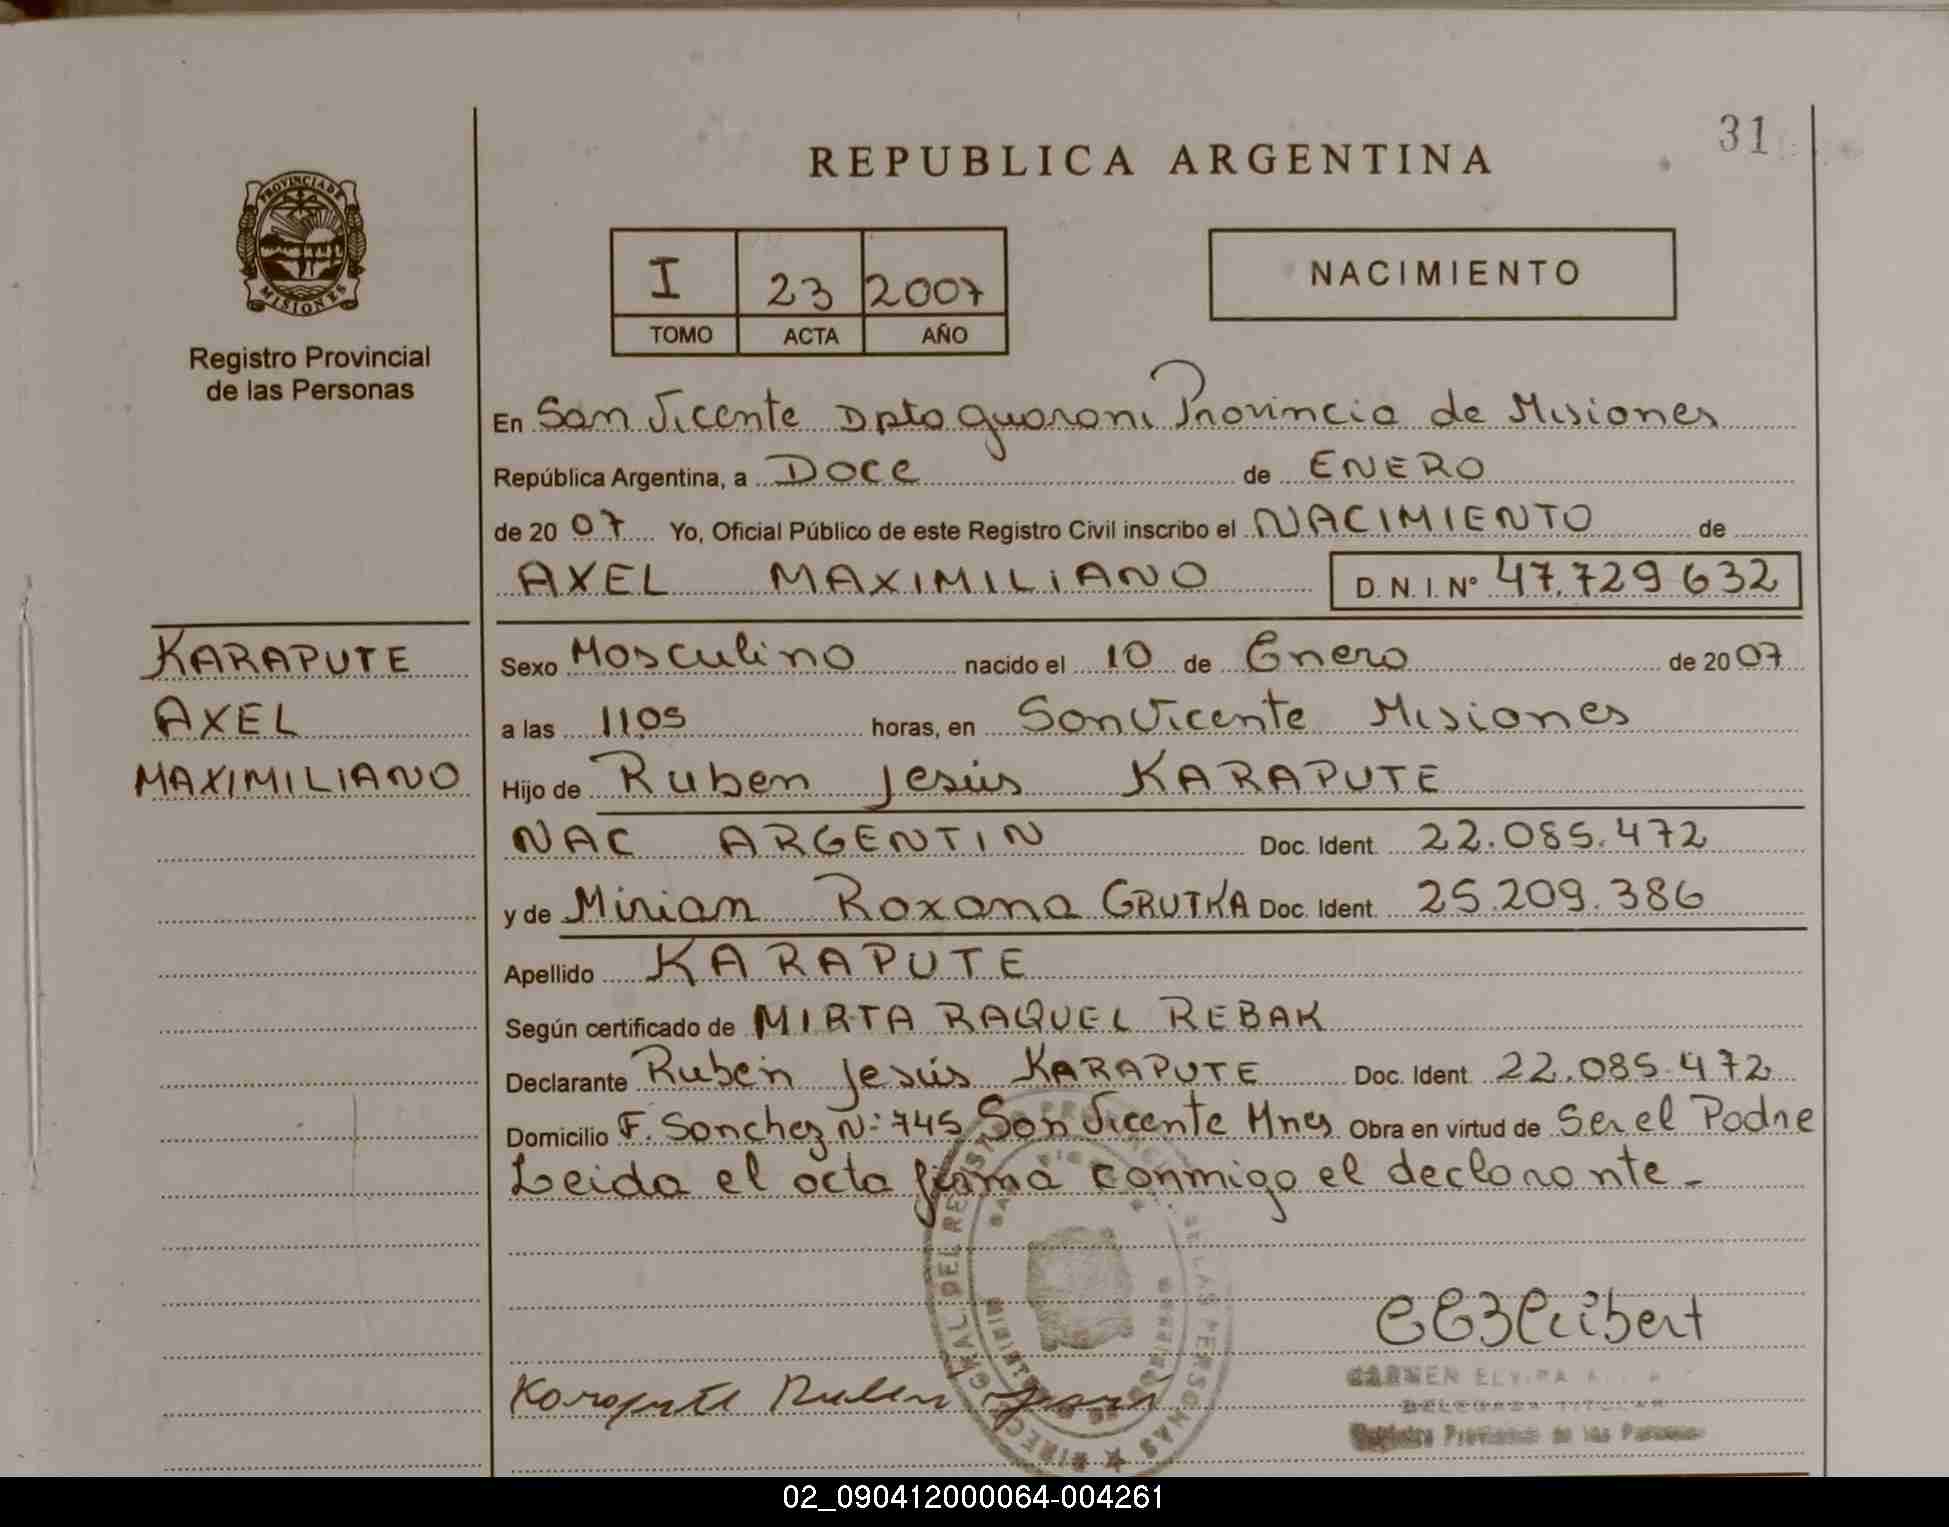 31
REPUBLICA ARGENTINA
PROVINCIA DE
MISIONES
Registro Provincial
de las Personas
I 23 2007
TOMO ACTA AÑO
NACIMIENTO
En San Vicente Dpto guarani Provincia de Misiones
República Argentina, a Doce de ENERO
de 20 07 Yo, Oficial Público de este Registro Civil inscribo el NACIMIENTO de
AXEL MAXIMILIANO D. N. I. Nº 47.729 632
KARAPUTE
AXEL
MAXIMILIANO
Sexo Masculino nacido el 10 de Enero de 20 07
a las 11,05 horas, en San Vicente Misiones
Hijo de Ruben Jesús KARAPUTE
NAC ARGENTIN Doc. Ident. 22.085.472
y de Mirian Roxana GRUTKA Doc. Ident. 25.209.386
Apellido KARAPUTE
Según certificado de MIRTA RAQUEL REBAK
Declarante Ruben Jesús KARAPUTE Doc. Ident. 22.085.472
Domicilio F. Sanchez Nº 745 San Vicente Mnes Obra en virtud de Ser el Padre
Leida el acta firma conmigo el declarante -
DEL DE LAS PERSONAS
CARMEN ELVIRA
DELEGADA TITULAR
Registro Provincial de las Personas
Karapute Ruben Jesús
02_090412000064-004261